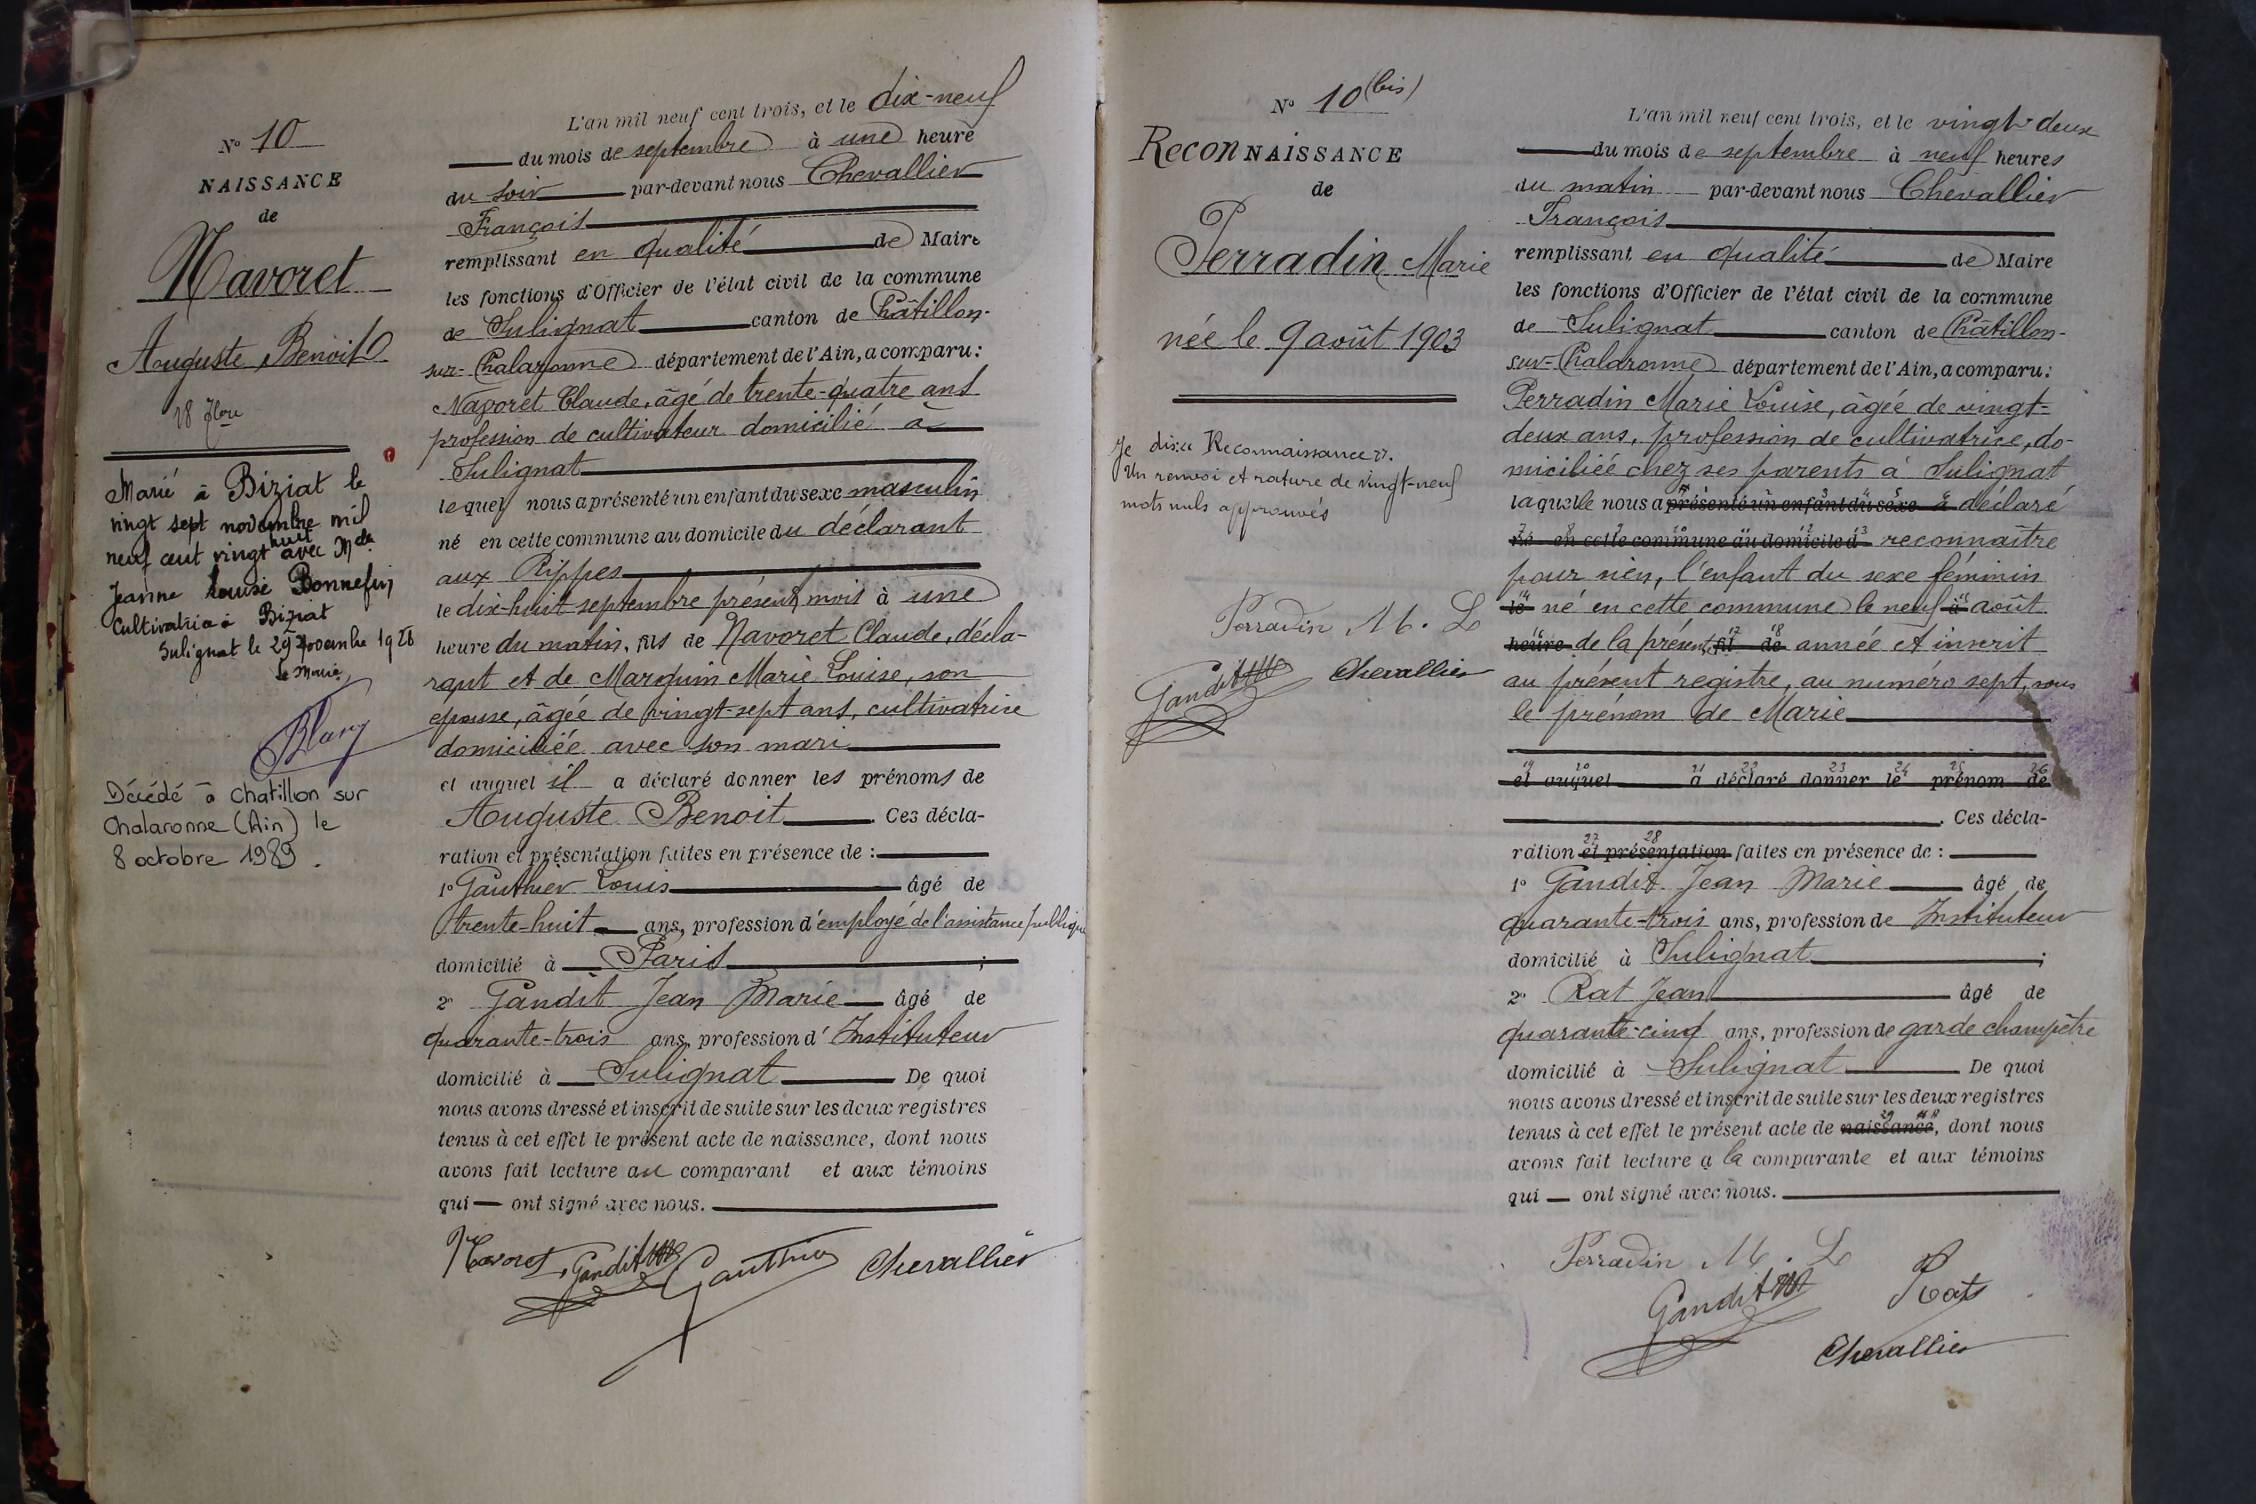 N° 10
NAISSANCE
de
Navoret
Auguste Benoit
18 7bre
Marié à Biziat le
vingt sept novembre mil
neuf cent vingt huit avec Mlle
Jeanne Louise Bonnefin
Cultivatrice à Biziat
Sulignat le 29 Novembre 1928
le Maire
Décédé à Chatillon sur
Chalaronne (Ain) le
8 octobre 1989.
L'an mil neuf cent trois, et le dix-neuf
du mois de septembre à une heure
du soir par-devant nous Chevallier
François
remplissant en qualité de Maire
les fonctions d'Officier de l'état civil de la commune
de Sulignat canton de Châtillon-
sur-Chalaronne département de l'Ain, a comparu:
Navoret Claude, âgé de trente-quatre ans
profession de cultivateur domicilié à
Sulignat
lequel nous a présenté un enfant du sexe masculin
né en cette commune au domicile du déclarant
aux Rippes
le dix-huit septembre présent mois à une
heure du matin, fils de Navoret Claude, décla-
rant et de Marquin Marie Louise, son
épouse, âgée de vingt-sept ans, cultivatrice
domiciliée avec son mari
et auquel il a déclaré donner les prénoms de
Auguste Benoit. Ces décla-
ration et présentation faites en présence de :
1° Gauthier Louis âgé de
trente-huit ans, profession d'employé de l'assistance publique
domicilié à Paris ;
2° Gandit Jean Marie âgé de
quarante-trois ans, profession d'Instituteur
domicilié à Sulignat De quoi
nous avons dressé et inscrit de suite sur les deux registres
tenus à cet effet le présent acte de naissance, dont nous
avons fait lecture au comparant et aux témoins
qui ont signé avec nous.
Navoret Gandit Gauthier Chevallier
N° 10 (bis)
ReconNAISSANCE
de
Perradin Marie
née le 9 août 1903
Je dis: Reconnaissance
Un renvoi et rature de vingt-neuf
mots nuls approuvés
Perradin M. L
Gandit Chevallier
L'an mil neuf cent trois, et le vingt-deux
du mois de septembre à neuf heures
du matin par-devant nous Chevallier
François
remplissant en qualité de Maire
les fonctions d'Officier de l'état civil de la commune
de Sulignat canton de Châtillon-
sur-Chalaronne département de l'Ain, a comparu:
Perradin Marie Louise, âgée de vingt-
deux ans, profession de cultivatrice, do-
miciliée chez ses parents à Sulignat
laquelle nous a présenté un enfant du sexe a déclaré
né en cette commune au domicile d reconnaître
pour sien, l'enfant du sexe féminin
le né en cette commune le neuf à août
heure de la présente fil de année et inscrit
au présent registre, au numéro sept, sous
le prénom de Marie
et auquel a déclaré donner le prénom de
. Ces décla-
ration et présentation faites en présence de :
1° Gandit Jean Marie âgé de
quarante-trois ans, profession de Instituteur
domicilié à Sulignat ;
2° Rat Jean âgé de
quarante-cinq ans, profession de garde champêtre
domicilié à Sulignat De quoi
nous avons dressé et inscrit de suite sur les deux registres
tenus à cet effet le présent acte de naissance, dont nous
avons fait lecture a la comparante et aux témoins
qui ont signé avec nous.
Perradin M. L
Gandit Rat
Chevallier